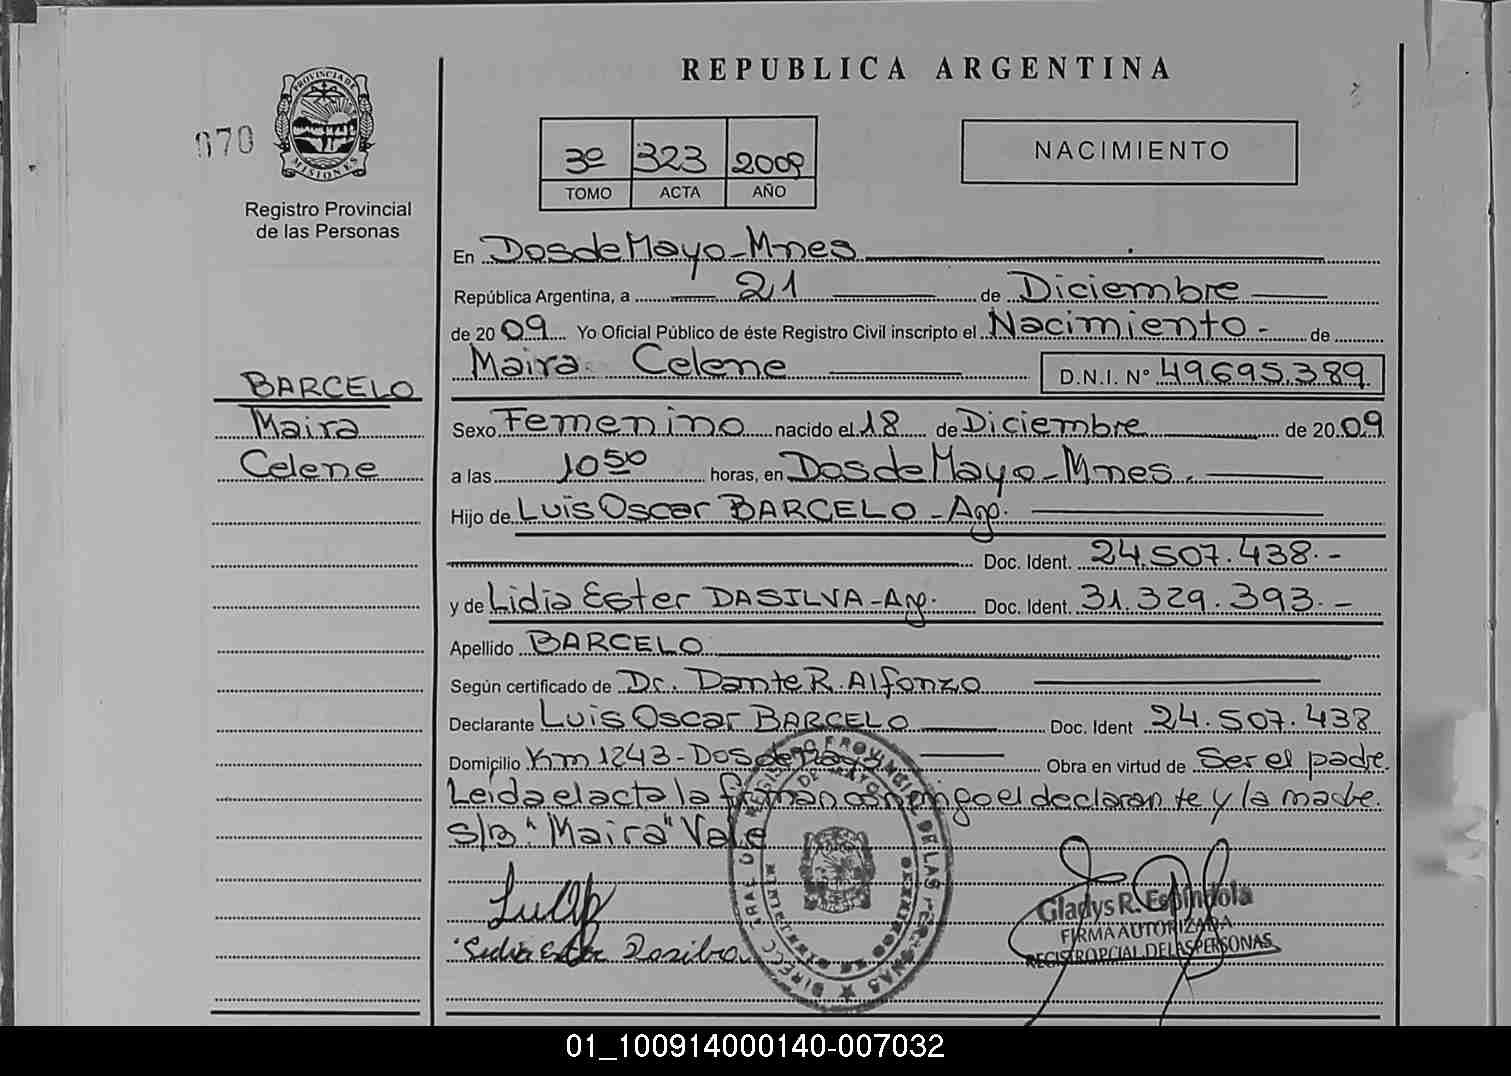 REPUBLICA ARGENTINA
PROVINCIA DE
MISIONES
070
Registro Provincial
de las Personas
3º 323 2009
TOMO ACTA AÑO
NACIMIENTO
En Dos de Mayo - Mnes
República Argentina, a 21 de Diciembre
de 2009 Yo Oficial Público de éste Registro Civil inscripto el Nacimiento - de
Maira Celene D.N.I. Nº 49.695.389
BARCELO
Maira
Celene
Sexo Femenino nacido el 18 de Diciembre de 2009
a las 10 50 horas, en Dos de Mayo - Mnes.
Hijo de Luis Oscar BARCELO - Arg.
Doc. Ident. 24.507.438.-
y de Lidia Ester DASILVA - Arg. Doc. Ident. 31.329.393.-
Apellido BARCELO
Según certificado de Dr. Dante R. Alfonzo
Declarante Luis Oscar BARCELO Doc. Ident 24.507.438
Domicilio Km 1243 - Dos de Mayo Obra en virtud de Ser el padre.
Leida el acta la firman conmigo el declarante y la madre.
S/B "Maira" Vale
Lidia Ester Dasilva
Gladys R. Espindola
FIRMA AUTORIZADA
REGISTRO PCIAL. DE LAS PERSONAS
01_100914000140-007032